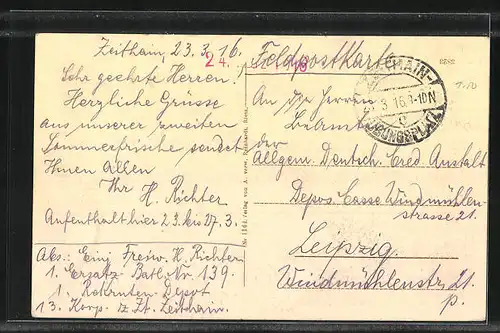 Zeithain, 23.3.16.
24.
Sehr geehrte Herren!
Herzliche Grüsse
aus unserer zweiten
Sommerfrische sendet
Ihnen Allen
Ihr H. Richter
Aufenthalt hier 23. bis 27.3.
Abs: Einj. Freiw. H. Richter
1. Ersatz-Batl. Nr. 139.
1. Rekruten-Depot
13. Korp. z. Zt. Zeithain.
Feldpostkarte
An die Herren
Beamten
der
Allgem. Deutsch. Cred. Anstalt
Depos. Casse Windmühlen-
strasse 21.
Leipzig.
Windmühlenstr. 21.
p.
HAIN-
3 16.9-10N
c
ÜBUNGSPLATZ